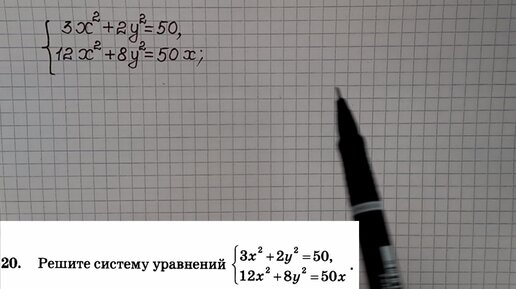 3x²+2y²=50,
12x²+8y²=50x;
20. Решите систему уравнений {3x²+2y²=50,
12x²+8y²=50x.